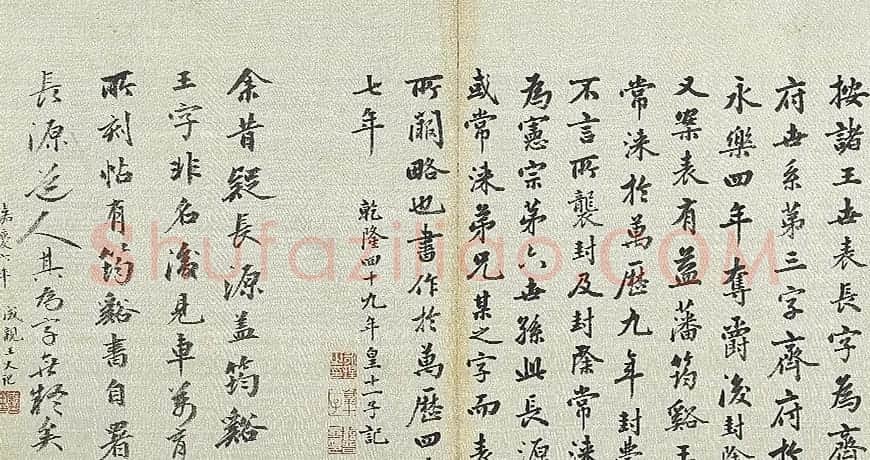 按諸王世表長字為齊
府世系第三字齊府於
永樂四年奪爵後封除
又案表有益藩筠谿王
常涞於萬歷九年封
不言所襲封及封除常涞
為憲宗第六世孫此長源
或常涞弟兄某之字而表
所闕略也書作於萬歷四
七年
乾隆四十九年皇十一子記
余昔疑長源蓋筠谿
王字非名後見車萬育
所刻帖有筠谿書自署
長源道人其為字無疑矣
嘉慶六年 成親王又記
Shufaziliao.COM